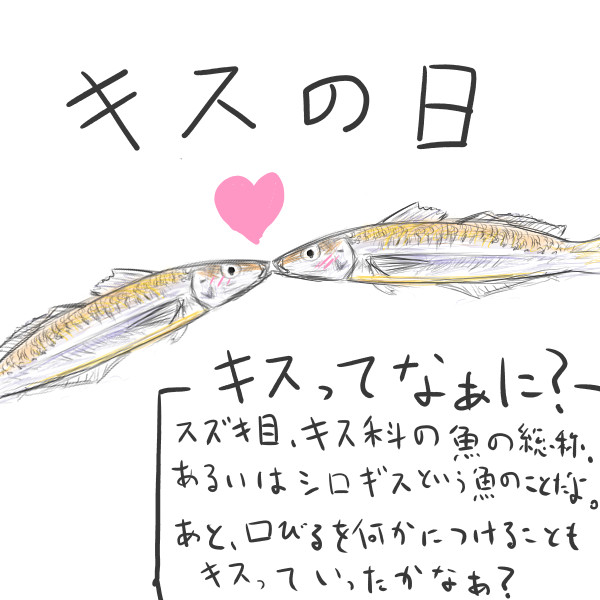 キスの日
キスってなぁに?
スズキ目、キス科の魚の総称。
あるいはシロギスという魚のことだよ。
あと、口びるを何かにつけることも
キスっていったかなぁ?